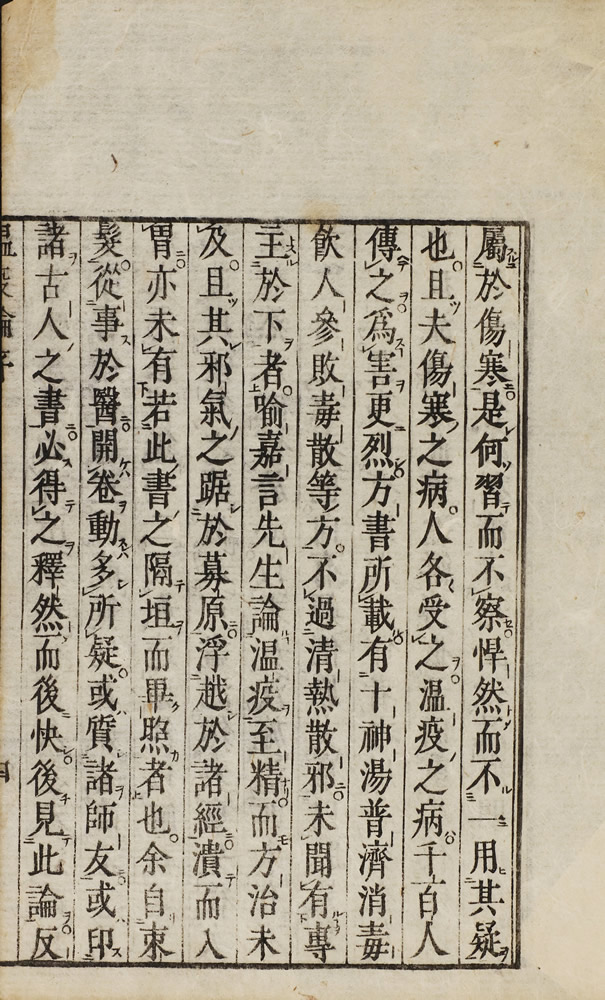 屬於傷寒是何習而不察悍然而不一用其疑
也且夫傷寒之病人各受之溫疫之病千百人
傳之爲害更烈方書所載有十神湯普濟消毒
飲人參敗毒散等方不過清熱散邪未聞有專
主於下者喻嘉言先生論溫疫至精而方治未
及且其邪氣之踞於募原浮越於諸經潰而入
胃亦未有若此書之隔垣而畢照者也余自束
髮從事於醫開卷動多所疑或質諸師友或印
諸古人之書必得之釋然而後快後見此論反